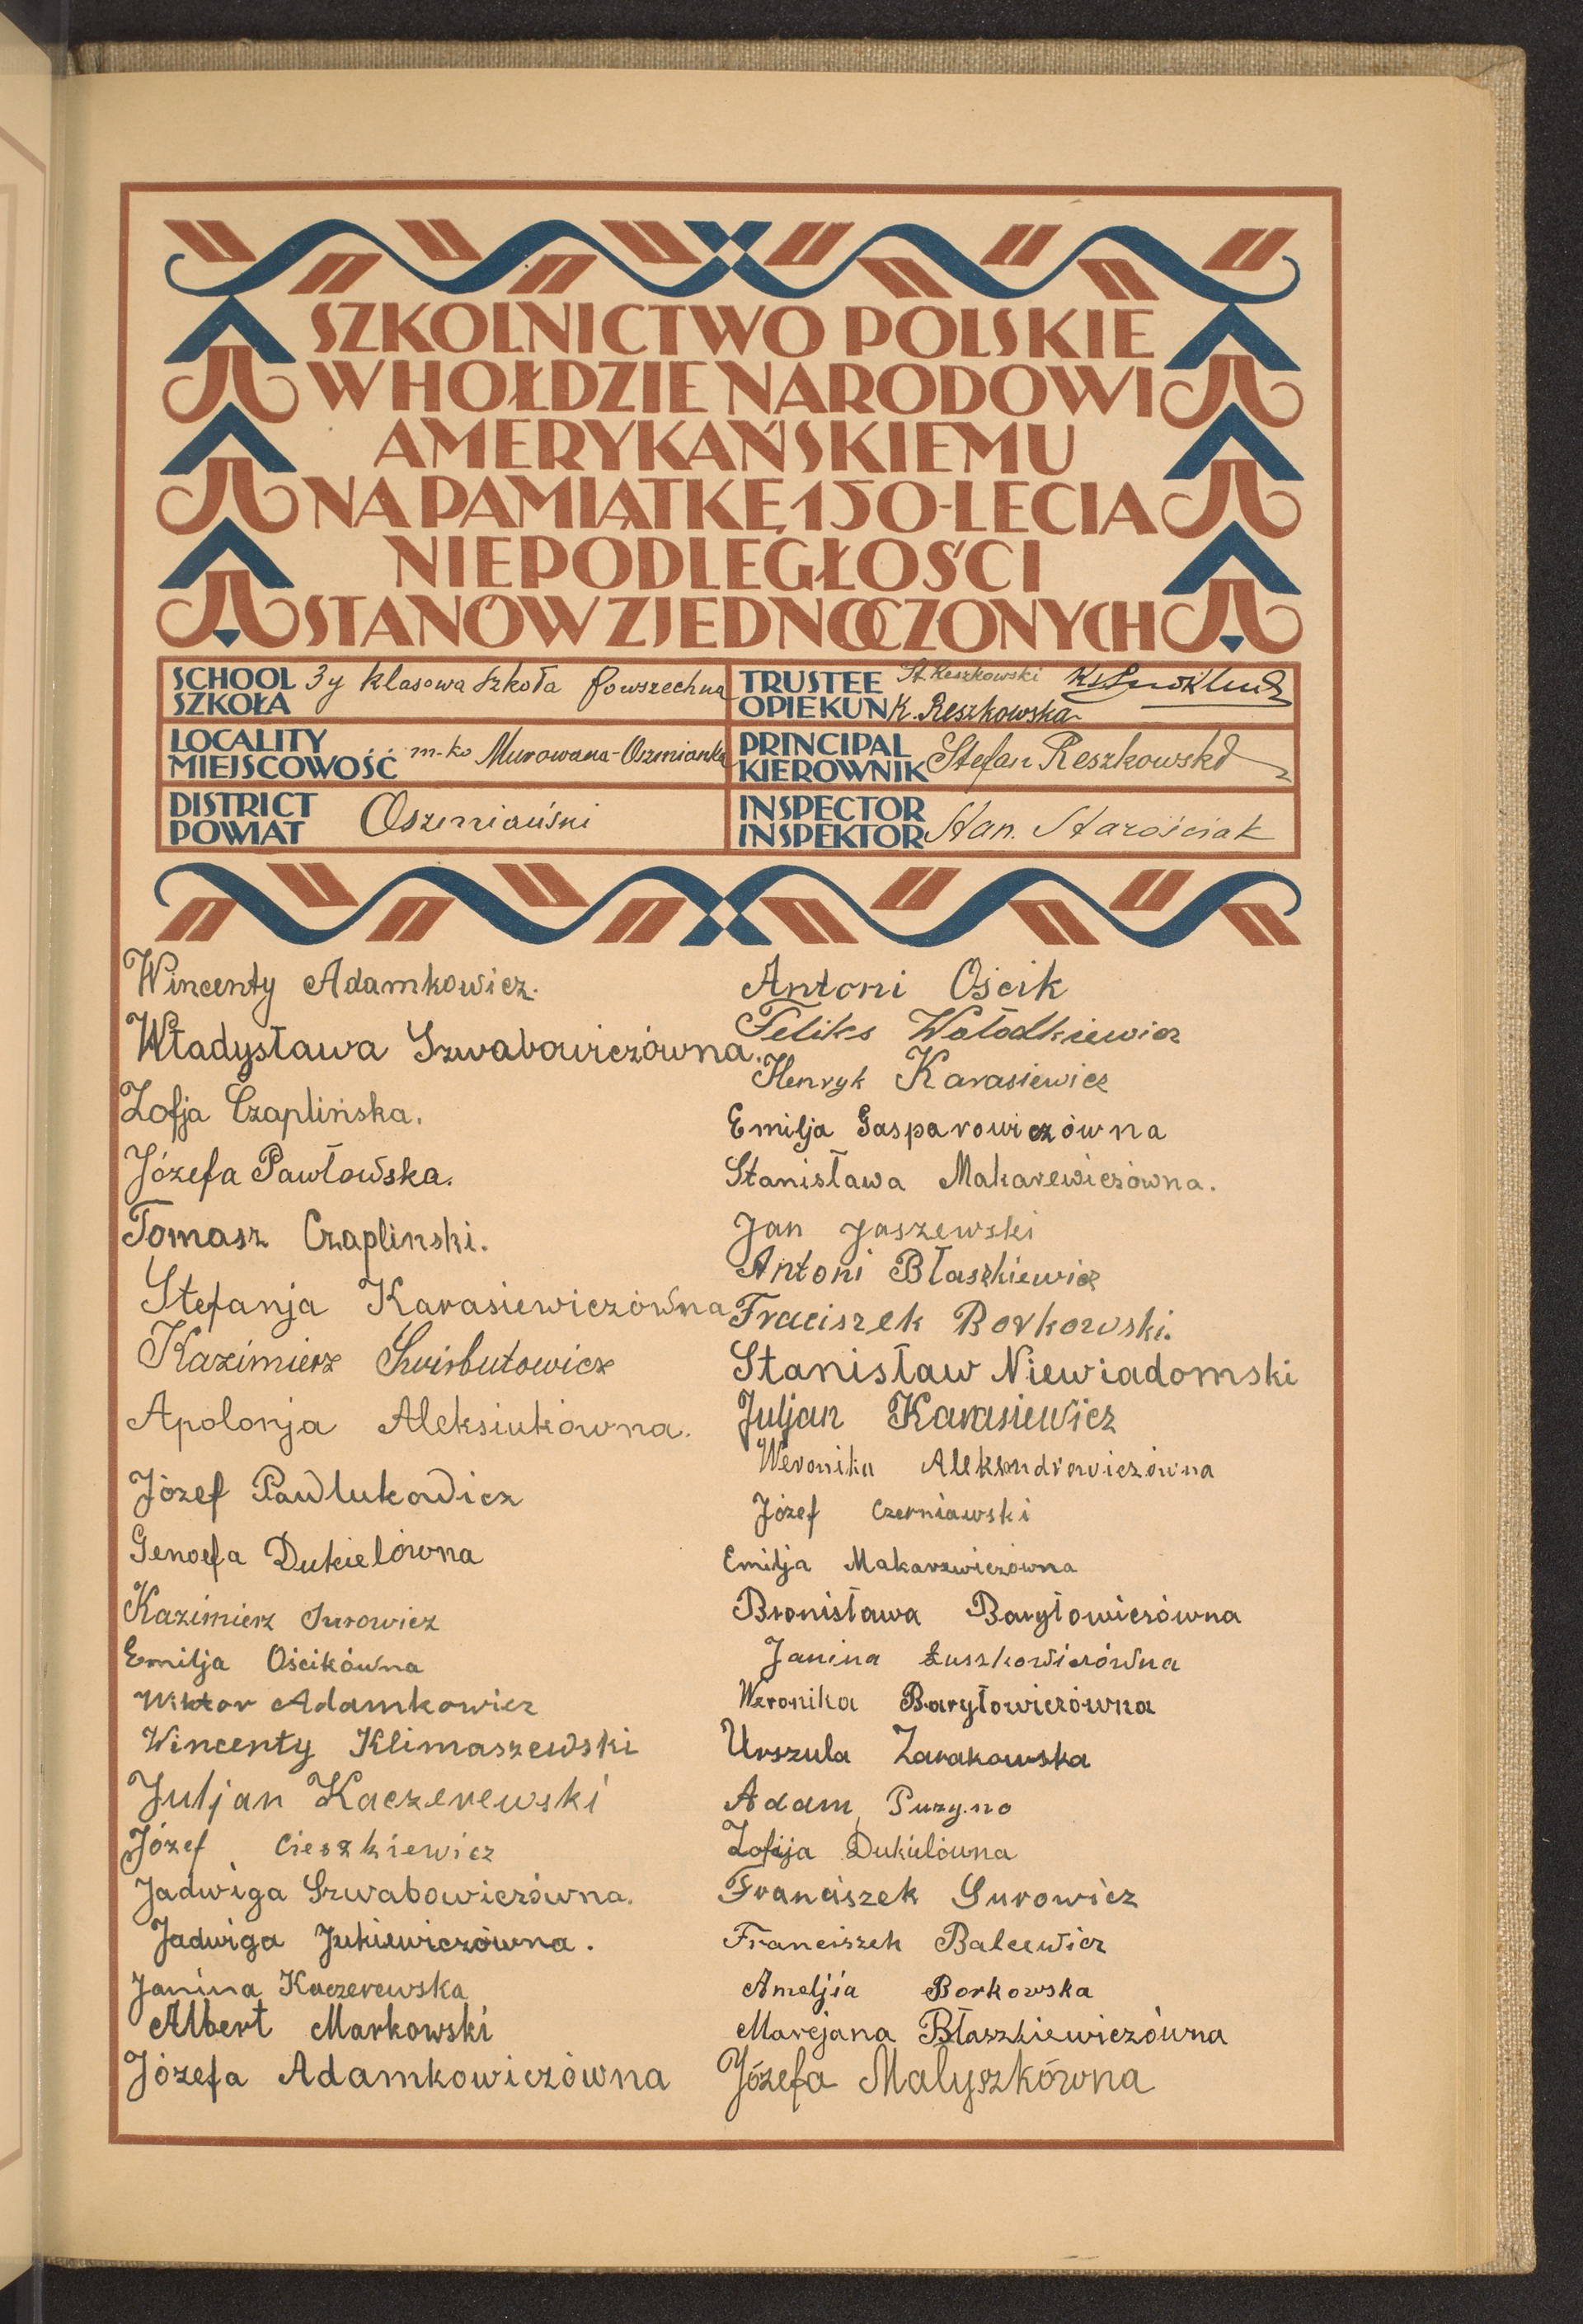 SZKOLNICTWO POLSKIE
W HOŁDZIE NARODOWI
AMERYKAŃSKIEMU
NA PAMIĄTKĘ 150-LECIA
NIEPODLEGŁOŚCI
STANÓW ZJEDNOCZONYCH
SCHOOL SZKOŁA 3y klasowa Szkoła Powszechna
TRUSTEE OPIEKUN St. Reszkowski
K. Reszkowska
LOCALITY MIEJSCOWOŚĆ m-ko Murowana-Oszmianka
PRINCIPAL KIEROWNIK Stefan Reszkowski
DISTRICT POWIAT Oszmiański
INSPECTOR INSPEKTOR Stan. Starościak
Wincenty Adamkowicz.
Władysława Szwabowiczówna.
Zofja Czaplińska.
Józefa Pawłowska.
Tomasz Czaplinski.
Stefanja Karasiewiczówna
Kazimierz Świrbutowicz
Apolonja Aleksiukówna.
Józef Pawlukowicz
Genoefa Dukielówna
Kazimierz Surowicz
Emilja Ościkówna
Wiktor Adamkowicz
Wincenty Klimaszewski
Juljan Kaczerewski
Józef Cieszkiewicz
Jadwiga Szwabowiczówna.
Jadwiga Jukiewiczówna.
Janina Kaczerewska
Albert Markowski
Józefa Adamkowiczówna
Antoni Ościk
Feliks Wołodkiewicz
Henryk Karasiewicz
Emilja Gasparowiczówna
Stanisława Makarewiczówna.
Jan Jaszewski
Antoni Błaszkiewicz
Fraciszek Borkowski.
Stanisław Niewiadomski
Juljan Karasiewicz
Weronika Aleksandrowiczówna
Józef Czerniawski
Emilja Makarewiczówna
Bronisława Baryłowiczówna
Janina Łuszkowiczówna
Weronika Baryłowiczówna
Urszula Zarakowska
Adam Puzyno
Zofija Dukielówna
Franciszek Surowicz
Franciszek Balcewicz
Ameljia Borkowska
Marejana Błaszkiewiczówna
Józefa Małyszkówna